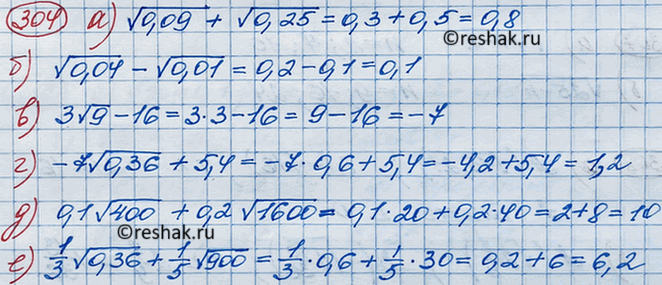 304 а) √0,09 + √0,25 = 0,3 + 0,5 = 0,8
©reshak.ru
б) √0,04 − √0,01 = 0,2 − 0,1 = 0,1
в) 3√9 − 16 = 3·3 − 16 = 9 − 16 = −7
г) −7√0,36 + 5,4 = −7·0,6 + 5,4 = −4,2 + 5,4 = 1,2
д) 0,1√400 + 0,2√1600 = 0,1·20 + 0,2·40 = 2 + 8 = 10
©reshak.ru
е) 1/3√0,36 + 1/5√900 = 1/3·0,6 + 1/5·30 = 0,2 + 6 = 6,2